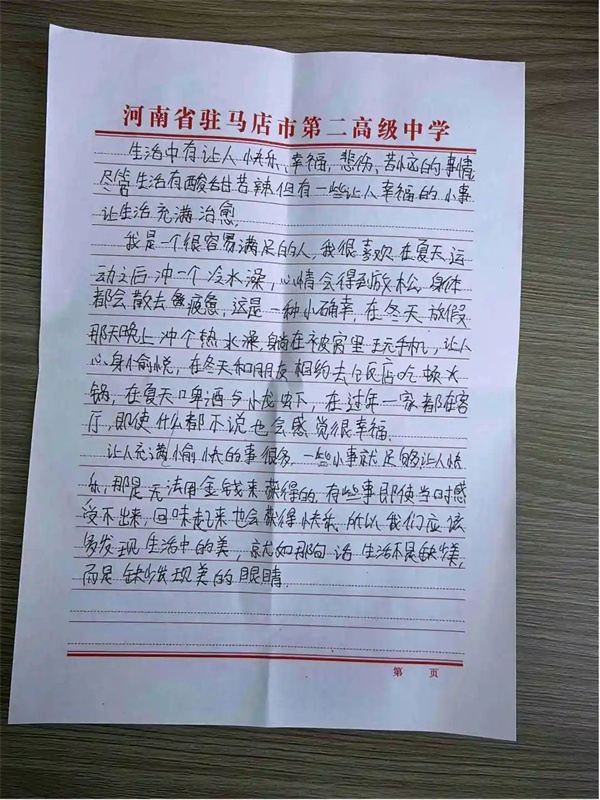 河南省驻马店市第二高级中学
生活中有让人快乐、幸福,悲伤、苦恼的事情
尽管生活有酸甜苦辣但有一些让人幸福的小事
让生活充满治愈,
我是一个很容易满足的人,我很喜欢在夏天运
动之后冲一个冷水澡,心情会得到放松,身体
都会散去疲惫,这是一种小确幸,在冬天放假
那天晚上冲个热水澡,躺在被窝里玩手机,让人
心身愉悦,在冬天和朋友相约去饭店吃顿火
锅,在夏天啤酒与小龙虾,在过年一家都在客
厅,即使什么都不说也会感觉很幸福.
让人充满愉快的事很多,一些小事就足够让人快
乐,那是无法用金钱来获得的,有些事即使当时感
受不出来,回味起来也会获得快乐,所以我们应该
多发现生活中的美,就如那句话 生活不是缺少美,
而是缺少发现美的眼睛.
第 页